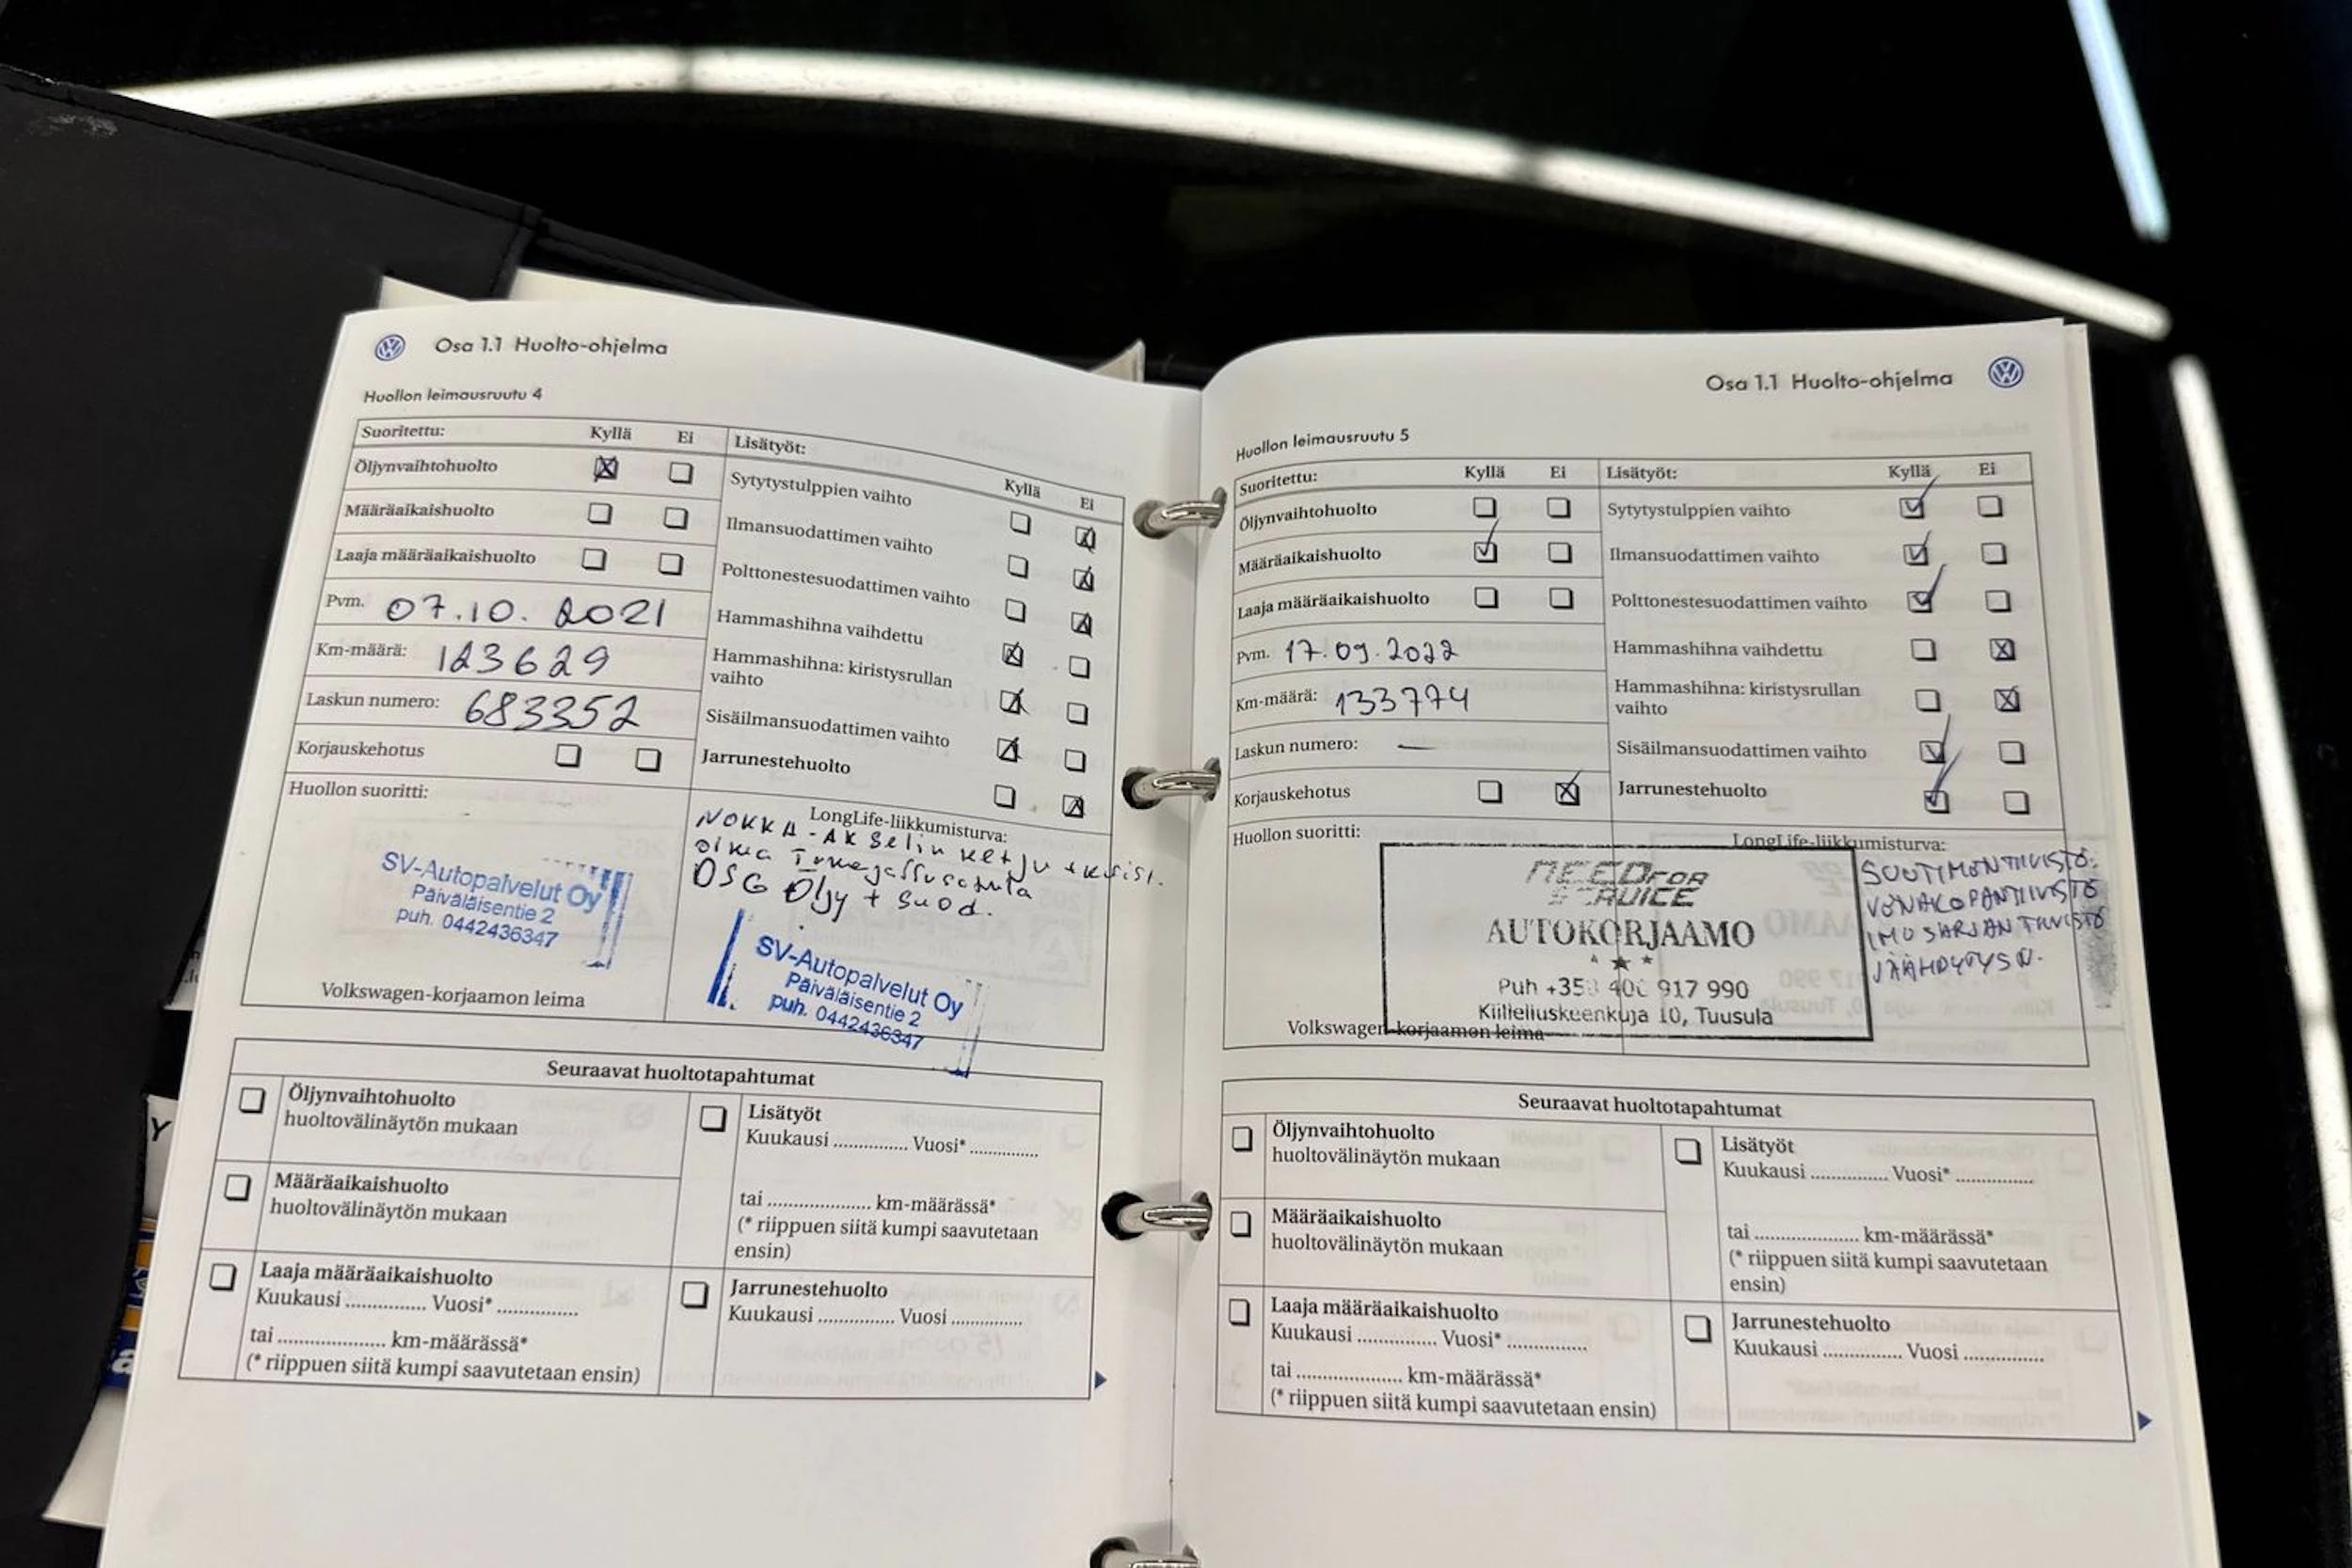 Osa 1.1 Huolto-ohjelma
Huollon leimausruutu 4
Suoritettu: Kyllä Ei
Öljynvaihtohuolto
Määräaikaishuolto
Laaja määräaikaishuolto
Pvm. 07.10.2021
Km-määrä: 123629
Laskun numero: 683352
Korjauskehotus
Lisätyöt: Kyllä Ei
Sytytystulppien vaihto
Ilmansuodattimen vaihto
Polttonestesuodattimen vaihto
Hammashihna vaihdettu
Hammashihna: kiristysrullan
vaihto
Sisäilmansuodattimen vaihto
Jarrunestehuolto
Huollon suoritti:
SV-Autopalvelut Oy
Päiväläisentie 2
puh. 0442436347
Volkswagen-korjaamon leima
LongLife-liikkumisturva:
NOKKA-AKSelin ketju + kirist.
oikea
DSG Öljy + Suod.
SV-Autopalvelut Oy
Päiväläisentie 2
puh. 0442436347
Seuraavat huoltotapahtumat
Öljynvaihtohuolto
huoltovälinäytön mukaan
Määräaikaishuolto
huoltovälinäytön mukaan
Laaja määräaikaishuolto
Kuukausi ............... Vuosi* ...............
tai .................... km-määrässä*
(* riippuen siitä kumpi saavutetaan ensin)
Lisätyöt
Kuukausi .............. Vuosi* .............
tai .................... km-määrässä*
(* riippuen siitä kumpi saavutetaan
ensin)
Jarrunestehuolto
Kuukausi .............. Vuosi .............
Osa 1.1 Huolto-ohjelma
Huollon leimausruutu 5
Suoritettu: Kyllä Ei
Öljynvaihtohuolto
Määräaikaishuolto
Laaja määräaikaishuolto
Pvm. 17.09.2022
Km-määrä: 133774
Laskun numero: —
Korjauskehotus
Lisätyöt: Kyllä Ei
Sytytystulppien vaihto
Ilmansuodattimen vaihto
Polttonestesuodattimen vaihto
Hammashihna vaihdettu
Hammashihna: kiristysrullan
vaihto
Sisäilmansuodattimen vaihto
Jarrunestehuolto
Huollon suoritti:
NEED FOR
SERVICE
AUTOKORJAAMO
Puh +358 400 917 990
Kiilleliuskeenkuja 10, Tuusula
Volkswagen-korjaamon leima
LongLife-liikkumisturva:
SUUTIMENTIIVISTE
VENAKOPANTIIVISTE
IMUSARJAN TIIVISTE
JÄÄHDYTYSN.
Seuraavat huoltotapahtumat
Öljynvaihtohuolto
huoltovälinäytön mukaan
Määräaikaishuolto
huoltovälinäytön mukaan
Laaja määräaikaishuolto
Kuukausi ............... Vuosi* ...............
tai .................... km-määrässä*
(* riippuen siitä kumpi saavutetaan ensin)
Lisätyöt
Kuukausi ............... Vuosi* ...............
tai .................... km-määrässä*
(* riippuen siitä kumpi saavutetaan
ensin)
Jarrunestehuolto
Kuukausi ............... Vuosi ...............